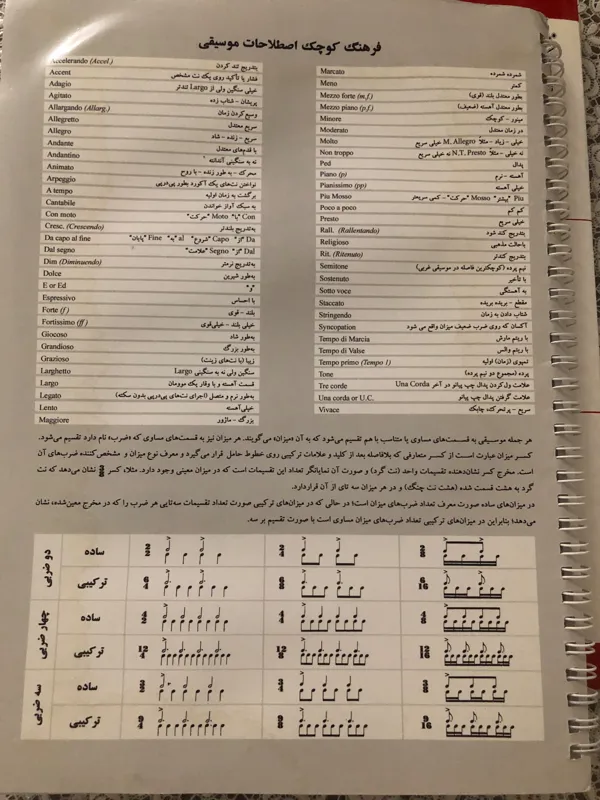 فرهنگ کوچک اصطلاحات موسیقی
Accelerando (Accel.) بتدریج تند کردن
Accent فشار یا تأکید روی یک نت مشخص
Adagio خیلی سنگین ولی از Largo تندتر
Agitato پریشان - شتاب زده
Allargando (Allarg.) وسیع کردن زمان
Allegretto سریع معتدل
Allegro سریع
Andante با قدم‌های معتدل
Andantino نه به سنگینی آندانته
Animato متحرک - به طور زنده - با روح
Arpeggio نواختن نت‌های یک آکورد بطور پی‌درپی
A tempo برگشت به زمان اولیه
Cantabile به سبک آواز خواندن
Con moto Con "با" Moto "حرکت"
Cresc. (Crescendo) به‌تدریج بلندتر
Da capo al fine Da "از" Capo "شروع" al "به" Fine "پایان"
Dal segno Dal "از" Segno "علامت"
Dim (Diminuendo) به‌تدریج نرمتر
Dolce به‌طور شیرین
E or Ed "و"
Espressivo با احساس
Forte (f) بلند - قوی
Fortissimo (ff) خیلی بلند - خیلی‌قوی
Giocoso به‌طور شاد
Grandioso به‌طور بزرگ
Grazioso زیبا (با نت‌های زینت)
Larghetto سنگین ولی نه به سنگینی Largo
Largo قسمت آهسته و با وقار یک موومان
Legato به‌طور نرم و متصل (اجرای نت‌های پی‌درپی بدون سکته)
Lento خیلی‌آهسته
Maggiore بزرگ - ماژور
Marcato شمرده شمرده
Meno کمتر
Mezzo forte (m.f.) بطور معتدل بلند (قوی)
Mezzo piano (p.f.) بطور معتدل آهسته (ضعیف)
Minore مینور - کوچک
Moderato در زمان معتدل
Molto خیلی - زیاد - مثلاً M. Allegro خیلی سریع
Non troppo نه خیلی - مثلاً N.T. Presto نه خیلی سریع
Ped پدال
Piano (p) آهسته - نرم
Pianissimo (pp) خیلی آهسته
Piu Mosso Piu "بیشتر" Mosso "حرکت" - کمی سریعتر
Poco a poco کم کم
Presto خیلی سریع
Rall. (Rallentando) بتدریج کند شود
Religioso باحالت مذهبی
Rit. (Ritenuto) بتدریج کندتر
Semitone نیم پرده (کوچکترین فاصله در موسیقی غربی)
Sostenuto با تأخیر
Sotto voce به آهستگی
Staccato مقطع - بریده بریده
Stringendo شتاب دادن به زمان
Syncopation آکسان که روی ضرب ضعیف میزان واقع می شود
Tempo di Marcia با ریتم مارش
Tempo di Valse با ریتم والس
Tempo primo (Tempo 1) تمپوی (زمان) اولیه
Tone پرده (مجموع دو نیم پرده)
Tre corde علامت ول‌کردن پدال چپ پیانو در آخر Una Corda
Una corda or U.C. علامت گرفتن پدال چپ پیانو
Vivace سریع - پرتحرک، چابک
هر جمله موسیقی به قسمت‌های مساوی یا متناسب با هم تقسیم می‌شود که به آن «میزان» می‌گویند. هر میزان نیز به قسمت‌های مساوی که «ضرب» نام دارد تقسیم می‌شود.
کسر میزان عبارت است از کسر متعارفی که بلافاصله بعد از کلید و علامات ترکیبی روی خطوط حامل قرار می‌گیرد و معرف نوع میزان و مشخص کننده ضرب‌های آن
است. مخرج کسر نشان‌دهنده تقسیمات واحد (نت گرد) و صورت آن نمایانگر تعداد این تقسیمات است که در میزان معینی وجود دارد. مثلا، کسر نشان می‌دهد که نت
گرد به هشت قسمت شده (هشت نت چنگ) و در هر میزان سه تای از آن قراردارد.
در میزان‌های ساده صورت معرف تعداد ضرب‌های میزان است؛ در حالی که در میزان‌های ترکیبی صورت تعداد تقسیمات سه‌تایی هر ضرب را که در مخرج معین‌شده، نشان
می‌دهد؛ بنابراین در میزان‌های ترکیبی تعداد ضرب‌های میزان مساوی است با صورت تقسیم بر سه.
دو ضربی
ساده
ترکیبی
چهار ضربی
ساده
ترکیبی
سه ضربی
ساده
ترکیبی